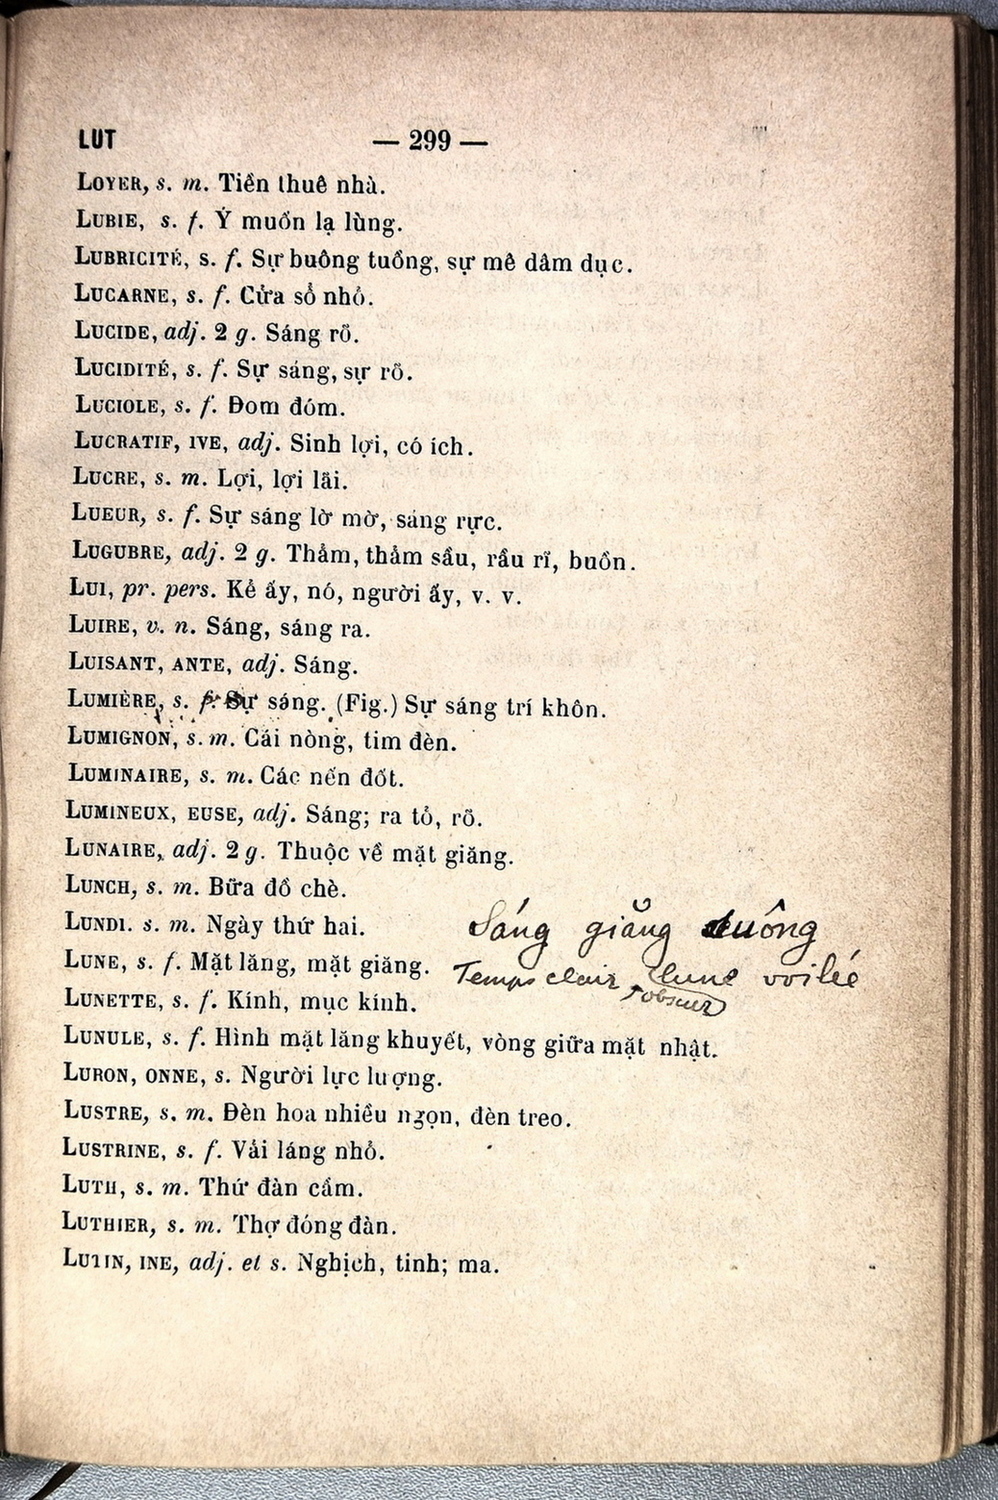 LUT — 299 —
LOYER, s. m. Tiền thuê nhà.
LUBIE, s. f. Ý muốn lạ lùng.
LUBRICITÉ, s. f. Sự buông tuồng, sự mê dâm dục.
LUCARNE, s. f. Cửa sổ nhỏ.
LUCIDE, adj. 2 g. Sáng rõ.
LUCIDITÉ, s. f. Sự sáng, sự rõ.
LUCIOLE, s. f. Đom đóm.
LUCRATIF, IVE, adj. Sinh lợi, có ích.
LUCRE, s. m. Lợi, lợi lãi.
LUEUR, s. f. Sự sáng lờ mờ, sáng rực.
LUGUBRE, adj. 2 g. Thảm, thảm sầu, rầu rĩ, buồn.
LUI, pr. pers. Kẻ ấy, nó, người ấy, v. v.
LUIRE, v. n. Sáng, sáng ra.
LUISANT, ANTE, adj. Sáng.
LUMIÈRE, s. f. Sự sáng. (Fig.) Sự sáng trí khôn.
LUMIGNON, s. m. Cái nòng, tim đèn.
LUMINAIRE, s. m. Các nến đốt.
LUMINEUX, EUSE, adj. Sáng; ra tỏ, rõ.
LUNAIRE, adj. 2 g. Thuộc về mặt giăng.
LUNCH, s. m. Bữa đồ chè.
LUNDI. s. m. Ngày thứ hai.
Sáng giăng suông
LUNE, s. f. Mặt lăng, mặt giăng.
Temps clair, lune voilée
obscur
LUNETTE, s. f. Kính, mục kính.
LUNULE, s. f. Hình mặt lăng khuyết, vòng giữa mặt nhật.
LURON, ONNE, s. Người lực lượng.
LUSTRE, s. m. Đèn hoa nhiều ngọn, đèn treo.
LUSTRINE, s. f. Vải láng nhỏ.
LUTH, s. m. Thứ đàn cầm.
LUTHIER, s. m. Thợ đóng đàn.
LUTIN, INE, adj. et s. Nghịch, tinh; ma.